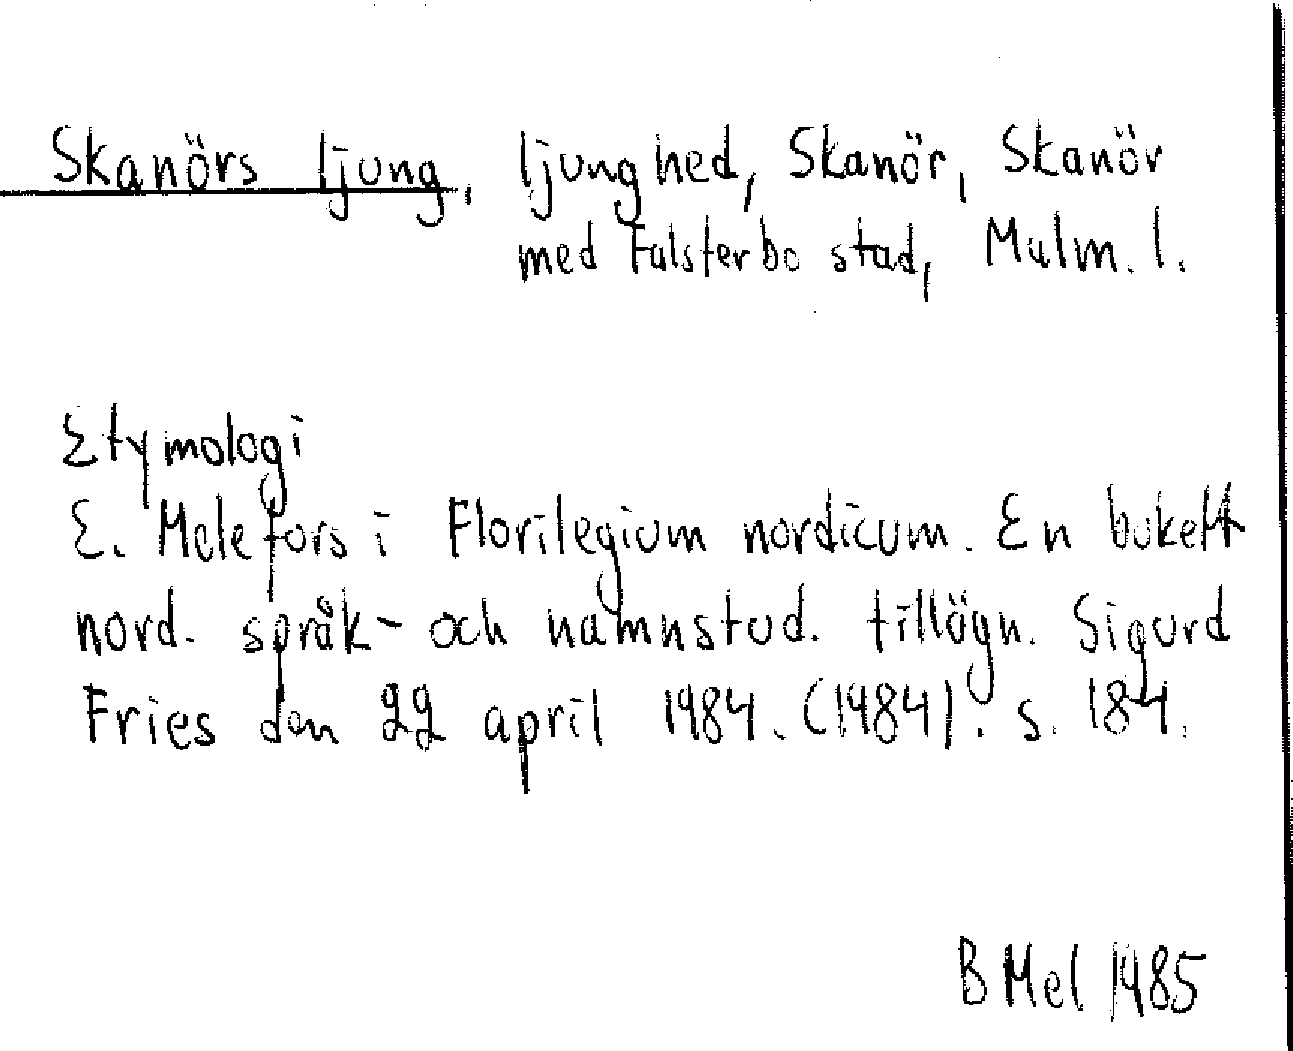 Skanörs ljung, ljunghed, Skanör, Skanör
med Falsterbo stad, Malm. l.
Etymologi
E. Melefors i Florilegium nordicum. En bukett
nord. språk- och namnstud. tillägn. Sigurd
Fries den 22 april 1984. (1984). s. 184.
B Mel 1985